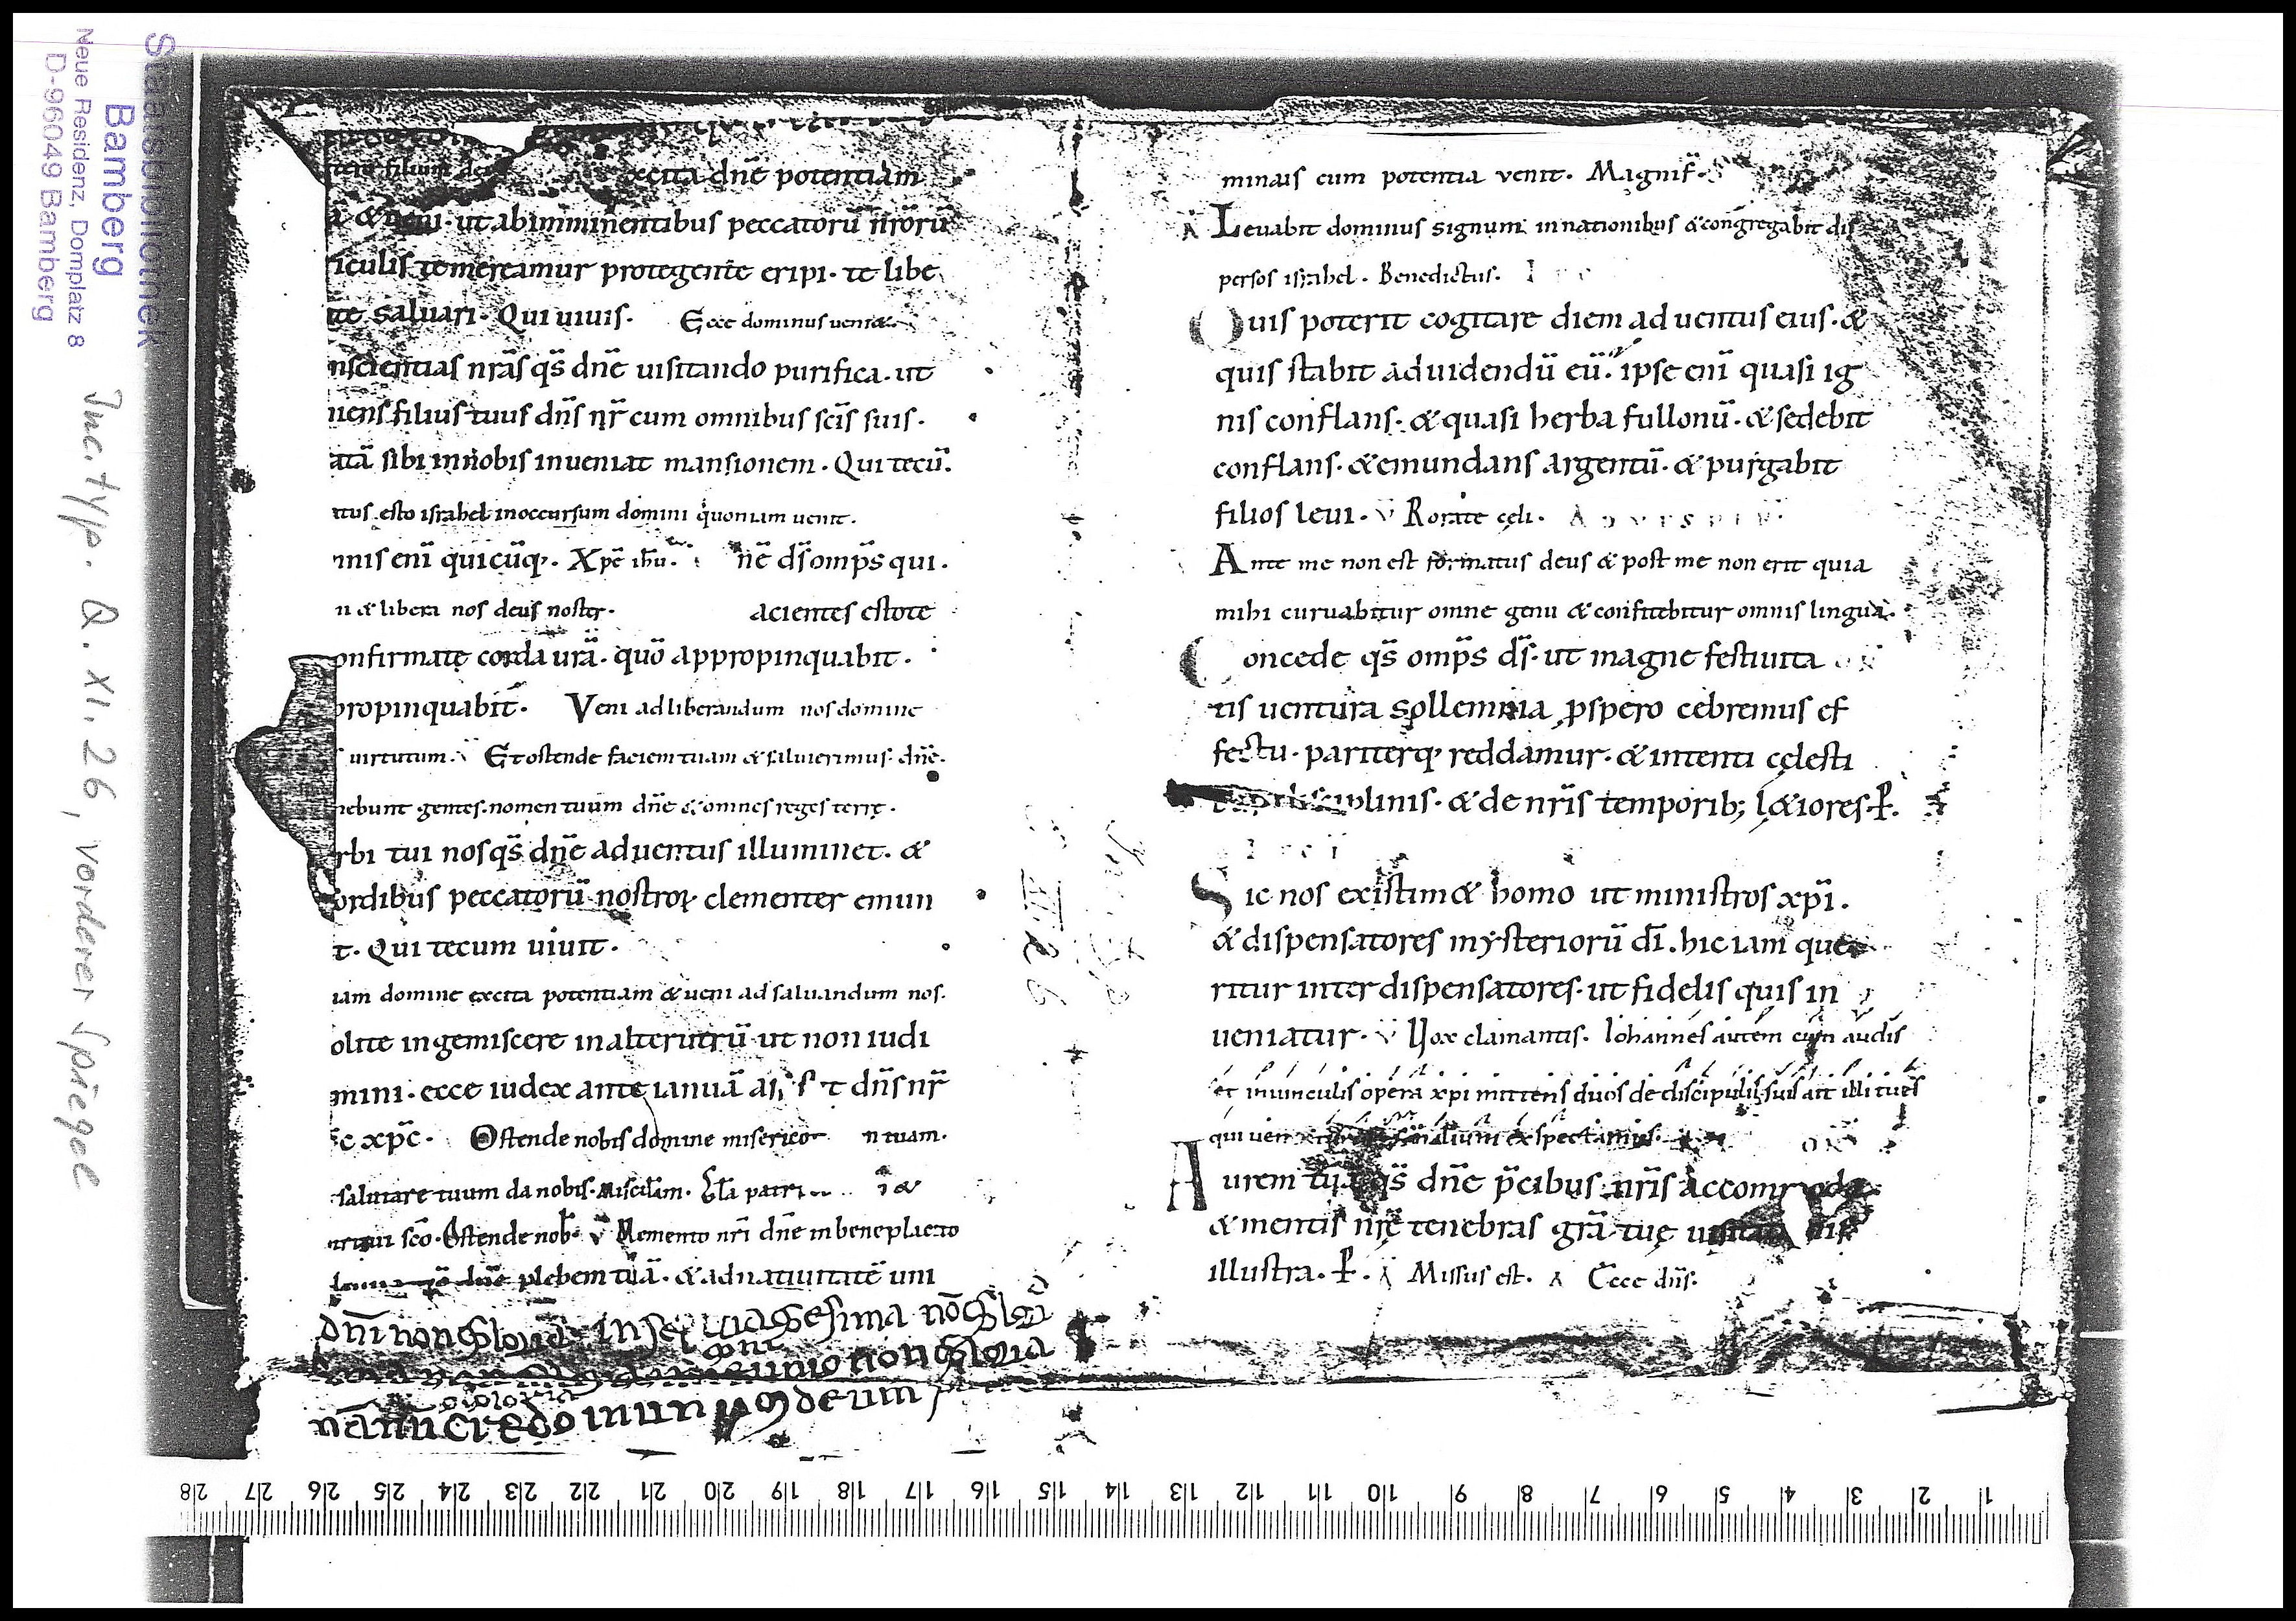 Staatsbibliothek
Bamberg
Neue Residenz, Domplatz 8
D-96049 Bamberg
Inc. typ. Q. XI. 26, vorderer Spiegel
filium dei xcita dnē potentiam
& veni · ut ab imminentibus peccatorū nr̄orū
iculis te mereamur protegente eripi · te libe
te saluari · Qui uiuis · Ecce dominus veni&
nscientias nrās qs̄ dnē uisitando purifica · ut
niens filius tuus dn̄s nr̄ cum omnibus scīs suis ·
atā sibi in nobis inueniat mansionem · Qui tecū.
tus esto israhel in occursum domini quoniam uenit ·
mis enī quicūq; · Xpē ihū · nē ds̄ omp̄s qui ·
n & libera nos deus noster · acientes estote
onfirmate corda urā · quō appropinquabit ·
propinquabit · Veni ad liberandum nos domine
s uirtutum · Et ostende faciem tuam & salui erimus · dnē ·
nebunt gentes nomen tuum dnē & omnes reges terrę ·
rbi tui nos qs̄ dnē aduentus illuminet · &
sordibus peccatorū nostroꝝ clementer emun
t · Qui tecum uiuit ·
iam domine excita potentiam & ueni ad saluandum nos ·
olite ingemiscere in alterutrū ut non iudi
mini · ecce iudex ante ianuā dn̄s nr̄
c xpc̄ · Ostende nobis domine misericor n tuam ·
salutare tuum da nobis · Misc̄dam · Gl̄a patri &
scō · Ostende nob̄ · v̄ Memento nr̄i dnē in beneplacito
plebem tuā · & ad natiuitatē uni
dn̄i non gloria in septuagesima nō gloā
non gloria
credo in unum deum
minaIs cum potentia venit · Magnif̄ ·
A Leuabit dominus signum in nationibus & congregabit dis
persos israhel · Benedictus ·
Quis poterit cogitare diem aduentus eius · &
quis stabit ad uidendū eū · ipse enī quasi ig
nis conflans · & quasi herba fullonū · & sedebit
conflans · & emundans argentū · & purgabit
filios leui · v Rorate cęli · AD VESPER
Ante me non est formatus deus & post me non erit quia
mihi curuabitur omne genu & confitebitur omnis lingua ·
Concede qs̄ omp̄s ds̄ · ut magne festiuita
tis uentura sollemnia ꝓspero cebremus ef
fectu · pariterq; reddamur · & intenti cęlesti
disciplinis · & de nrīs temporib; l&iores · P̄.
Sic nos existim& homo ut ministros xpī ·
& dispensatores mysteriorū dī · hic iam que
ritur inter dispensatores · ut fidelis quis in
ueniatur · v Vox clamantis · Iohannes autem cum audis
et in uinculis opera xpi mittens duos de discipulis suis ait illi tu es
qui uen alium exspectamus · OR
Aurem tuā qs̄ dnē p̄cibus nrīs accommoda
& mentis nrę̄ tenebras grā tuę
illustra · P̄ · A Missus est · A Ecce dn̄s ·
II 26
1 2 3 4 5 6 7 8 9 10 11 12 13 14 15 16 17 18 19 20 21 22 23 24 25 26 27 28